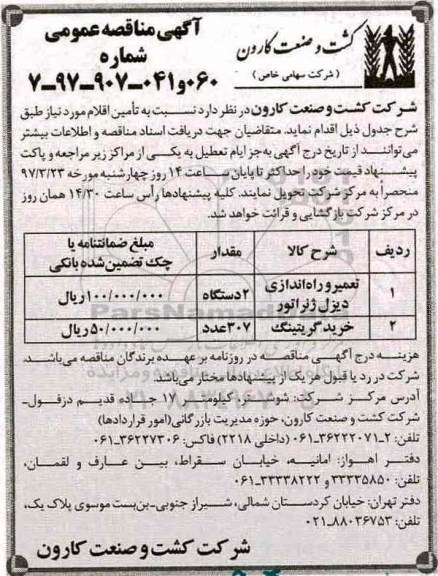 آگهی مناقصه عمومی
شماره
۰۶۰و۰۴۱-۹۰۷-۹۷-۷
کشت و صنعت کارون
(شرکت سهامی خاص)
شرکت کشت و صنعت کارون در نظر دارد نسبت به تأمین اقلام مورد نیاز طبق
شرح جدول ذیل اقدام نماید. متقاضیان جهت دریافت اسناد مناقصه و اطلاعات بیشتر
می‌توانند از تاریخ درج آگهی به‌جز ایام تعطیل به یکی از مراکز زیر مراجعه و پاکت
پیشنهاد قیمت خود را حداکثر تا پایان ساعت ۱۴ روز چهارشنبه مورخه ۹۷/۳/۲۳
منحصراً به مرکز شرکت تحویل نمایند. کلیه پیشنهادها رأس ساعت ۱۴/۳۰ همان روز
در مرکز شرکت بازگشایی و قرائت خواهد شد.
ردیف شرح کالا مقدار مبلغ ضمانتنامه یا چک تضمین شده بانکی
۱ تعمیر و راه‌اندازی دیزل ژنراتور ۲دستگاه ۱۰۰/۰۰۰/۰۰۰ریال
۲ خرید گریتینگ ۳۰۷عدد ۵۰/۰۰۰/۰۰۰ریال
هزینه درج آگهی مناقصه در روزنامه بر عهده برندگان مناقصه می‌باشد،
شرکت در رد یا قبول هر یک از پیشنهادها مختار می‌باشد.
آدرس مرکز شرکت: شوشتر، کیلومتر ۱۷ جاده قدیم دزفول-
شرکت کشت و صنعت کارون، حوزه مدیریت بازرگانی(امور قراردادها)
تلفن: ۲-۳۶۲۲۲۰۷۱-۰۶۱ (داخلی ۲۲۱۸) فاکس: ۳۶۲۲۷۳۰۶-۰۶۱
دفتر اهواز: امانیه، خیابان سقراط، بین عارف و لقمان،
تلفن: ۳۳۳۳۵۸۵۰ و ۳۳۳۳۸۲۲۲-۰۶۱
دفتر تهران: خیابان کردستان شمالی، شیراز جنوبی-بن‌بست موسوی پلاک یک،
تلفن: ۸۸۰۳۶۷۵۳-۰۲۱
شرکت کشت و صنعت کارون